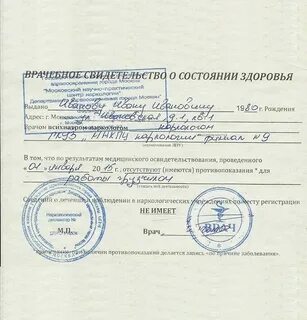 здравоохранения города Москвы
"Московский научно-практический
центр наркологии"
Департамента здравоохранения города Москвы
ВРАЧЕБНОЕ СВИДЕТЕЛЬСТВО О СОСТОЯНИИ ЗДОРОВЬЯ
Выдано Иванову Ивану Ивановичу 1980 г. Рождения
Адрес: г. Москва, ул. Ивановская д.1, кв.1
Врачом психиатром-наркологом наркологом
ГКУЗ "МНПЦ наркологии" филиал №9
В том, что по результатам медицинского освидетельствования, проведенного
«01» января 2016 г. отсутствуют (имеются) противопоказания * для
работы грузчиком
Сведения о лечении и наблюдении в наркологических учреждениях по месту регистрации
НЕ ИМЕЕТ
Врач
М.П.
ВРАЧ
противопоказаний делается запись «по причине заболевания».